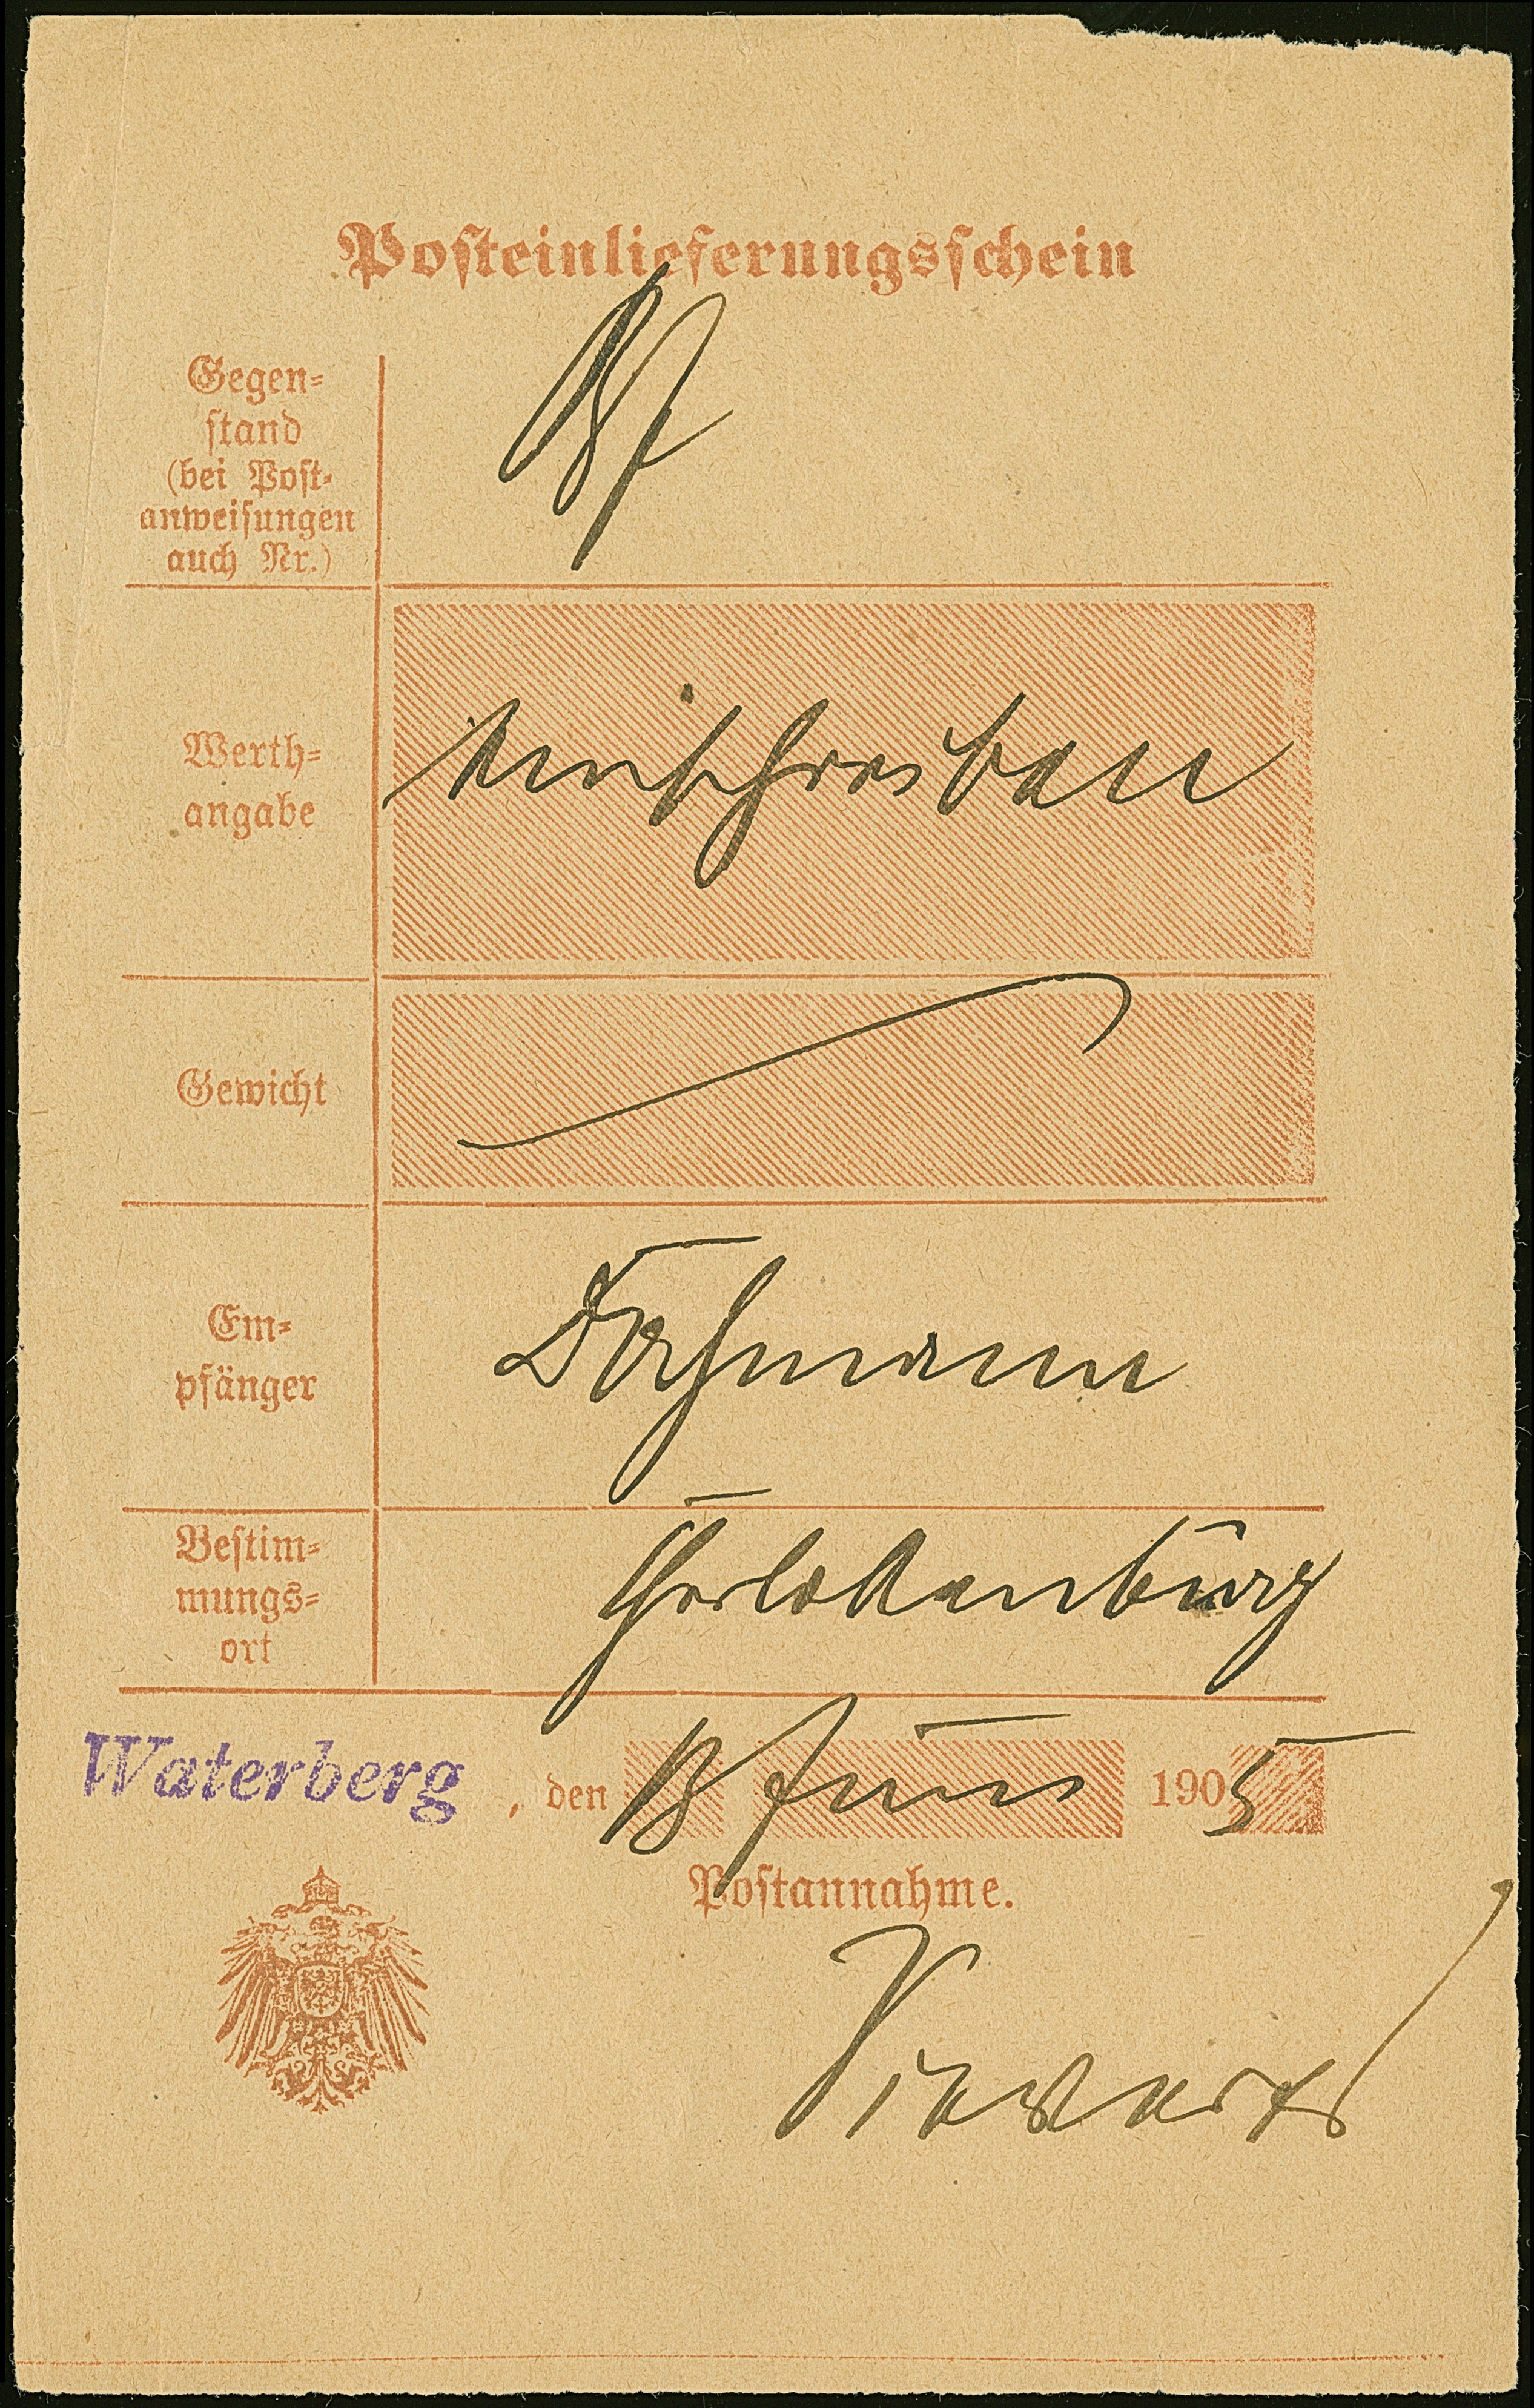 Posteinlieferungsschein
Gegen-
stand
(bei Post-
anweisungen
auch Nr.)
Bf
Werth-
angabe
Einschreiben
Gewicht
Em-
pfänger
Bestim-
mungs-
ort
Charlottenburg
Waterberg, den 13 Juni 1905
Postannahme.